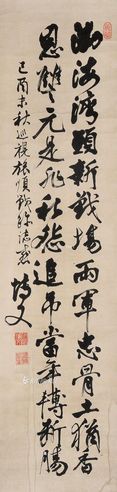 渤海灣頭新戰場兩軍忠骨土猶香
恩讎元是非私怨追吊當年轉斷腸
己酉末秋巡視旅順戰跡誌感
博文